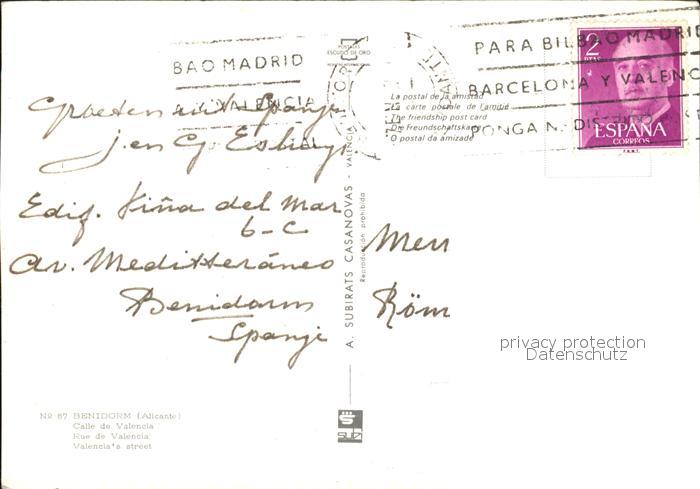 BAO MADRID
Y VALENCIA
POSTALES
ESCUDO DE ORO
PARA BILBAO MADRID
BARCELONA Y VALENC
PONGA N. DISTRITO
2
PTAS
ESPAÑA
CORREOS
La postal de la amistad
La carte postale de l'amitié
The friendship post card
Die Freundschaftskarte
O postal da amizade
Groeten uit Spanje
J. en G.
Edif. Viña del Mar
6-C
Av. Mediterráneo
Benidorm
Spanje
A. SUBIRATS CASANOVAS - VALENCIA
Reproducción prohibida
Röm
privacy protection
Datenschutz
Nº 67 BENIDORM (Alicante)
Calle de Valencia
Rue de Valencia
Valencia's street